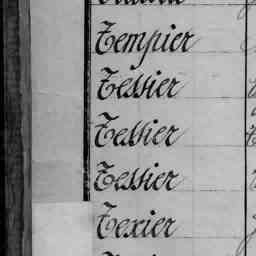 Tempier
Tessier
Tessier
Tessier
Texier